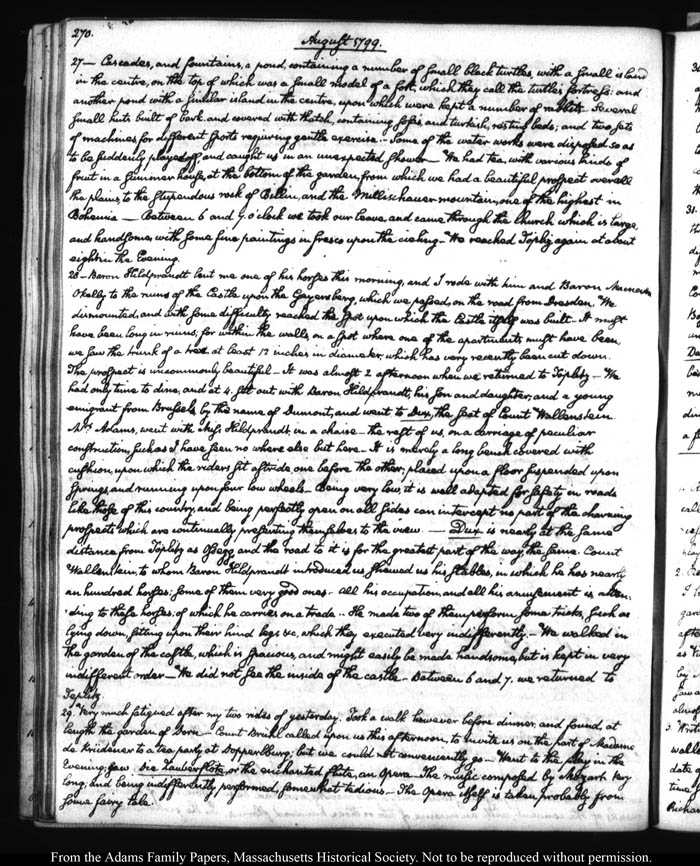 270.
August 1799.
27— Cascades, and fountains, a pond, containing a number of small black turtles, with a small island
in the centre, on the top of which was a small model of a fort, which they call the turtles fortress: and
another pond with a similar island in the centre, upon which were kept a number of rabbits. Several
small huts built of bark, and covered with thatch, containing sofas, and turkish, resting beds; and two sets
of machines for different sports requiring gentle exercise.. Some of the water works were disposed so as
to be suddenly played off, and caught us in an unexpected shower— We had tea, with various kinds of
fruit in a summer house, at the bottom of the garden, from which we had a beautiful prospect over all
the plains to the stupendous rock of Bilin, and the Millischauer mountain, one of the highest in
Bohemia— Between 6 and 7. o'clock we took our leave, and came through the Church which is large
and handsome, with some fine paintings in fresco upon the cieling— We reached Töplitz again at about
eight in the Evening.
28— Baron Hildprandt lent me one of his horses this morning, and I rode with him and Baron
O'kelly to the ruins of the Castle upon the Geyersberg, which we passed, on the road from Dresden. We
dismounted, and with some difficulty reached the spot upon which the Castle itself was built— It must
have been long in ruins, for within the walls, on a spot where one of the apartments must have been,
we saw the trunk of a tree at least 12 inches in diameter, which has very recently been cut down.
The prospect is uncommonly beautiful— It was almost 2 afternoon when we returned to Töplitz— We
had only time to dine, and at 4. set out with Baron Hildprandt, his son and daughter, and a young
emigrant from Brussels by the name of Dumont, and went to Dux, the seat of Count Wallenstein
Mrs. Adams, went with Miss Hildprandt, in a chaise— the rest of us, on a carriage of peculiar
construction, such as I have seen no where else but here— It is merely a long bench covered with
cushion, upon which the riders sit astride, one before the other, placed upon a floor suspended upon
springs, and running upon four low wheels— Being very low, it is well adapted for safety in roads
like those of this country, and being perfectly open on all sides can intercept no part of the charming
prospects which are continually presenting themselves to the view.— Dux is nearly at the same
distance from Töplitz as Ossegg, and the road to it is for the greatest part of the way the same. Count
Wallenstein, to whom Baron Hildprandt introduced us, shewed us his stables, in which he has nearly
an hundred horses; some of them very good ones— all his occupation, and all his amusement is atten-
ding to these horses, of which he carries on a trade.. He made two of them perform some tricks, such as
lying down, sitting upon their hind legs &c, which they executed very indifferently.— We walked in
the garden of the castle, which is spacious, and might easily be made handsome, but is kept in very
indifferent order— We did not see the inside of the castle— Between 6 and 7. we returned to
Töplitz
29. Very much fatigued after my two rides of yesterday. Took a walk however before dinner, and found at
length the garden of Dorn— Count Brühl called upon us this afternoon, to invite us on the part of Madame
de Krüdener to a tea party at; but we could not conveniently go— Went to the play in the
Evening; saw Die Zauberflöte, or the enchanted flute, an Opera. The music composed by Mozart. Very
long, and being indifferently performed, somewhat tedious— The Opera itself is taken probably from
some fairy tale.
From the Adams Family Papers, Massachusetts Historical Society. Not to be reproduced without permission.